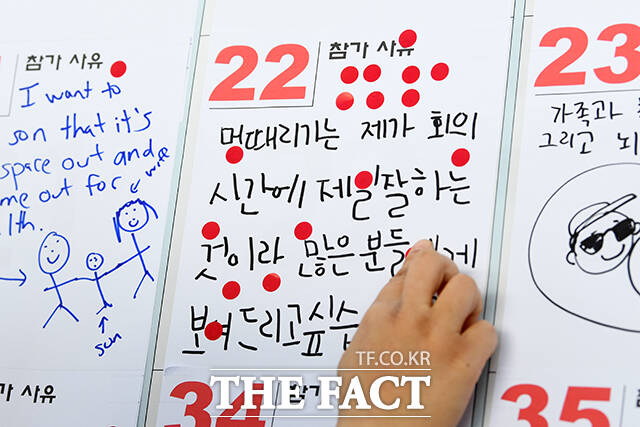 참가 사유
I want to
son that it's
space out and
me out for
lth.
wife
son
22
참가 사유
멍때리기는 제가 회의
시간에 제일 잘하는
것이라 많은 분들에게
보여드리고 싶습
23
가족과
그리고 뇌
참가 사유
34
35
TF.CO.KR
THE FACT